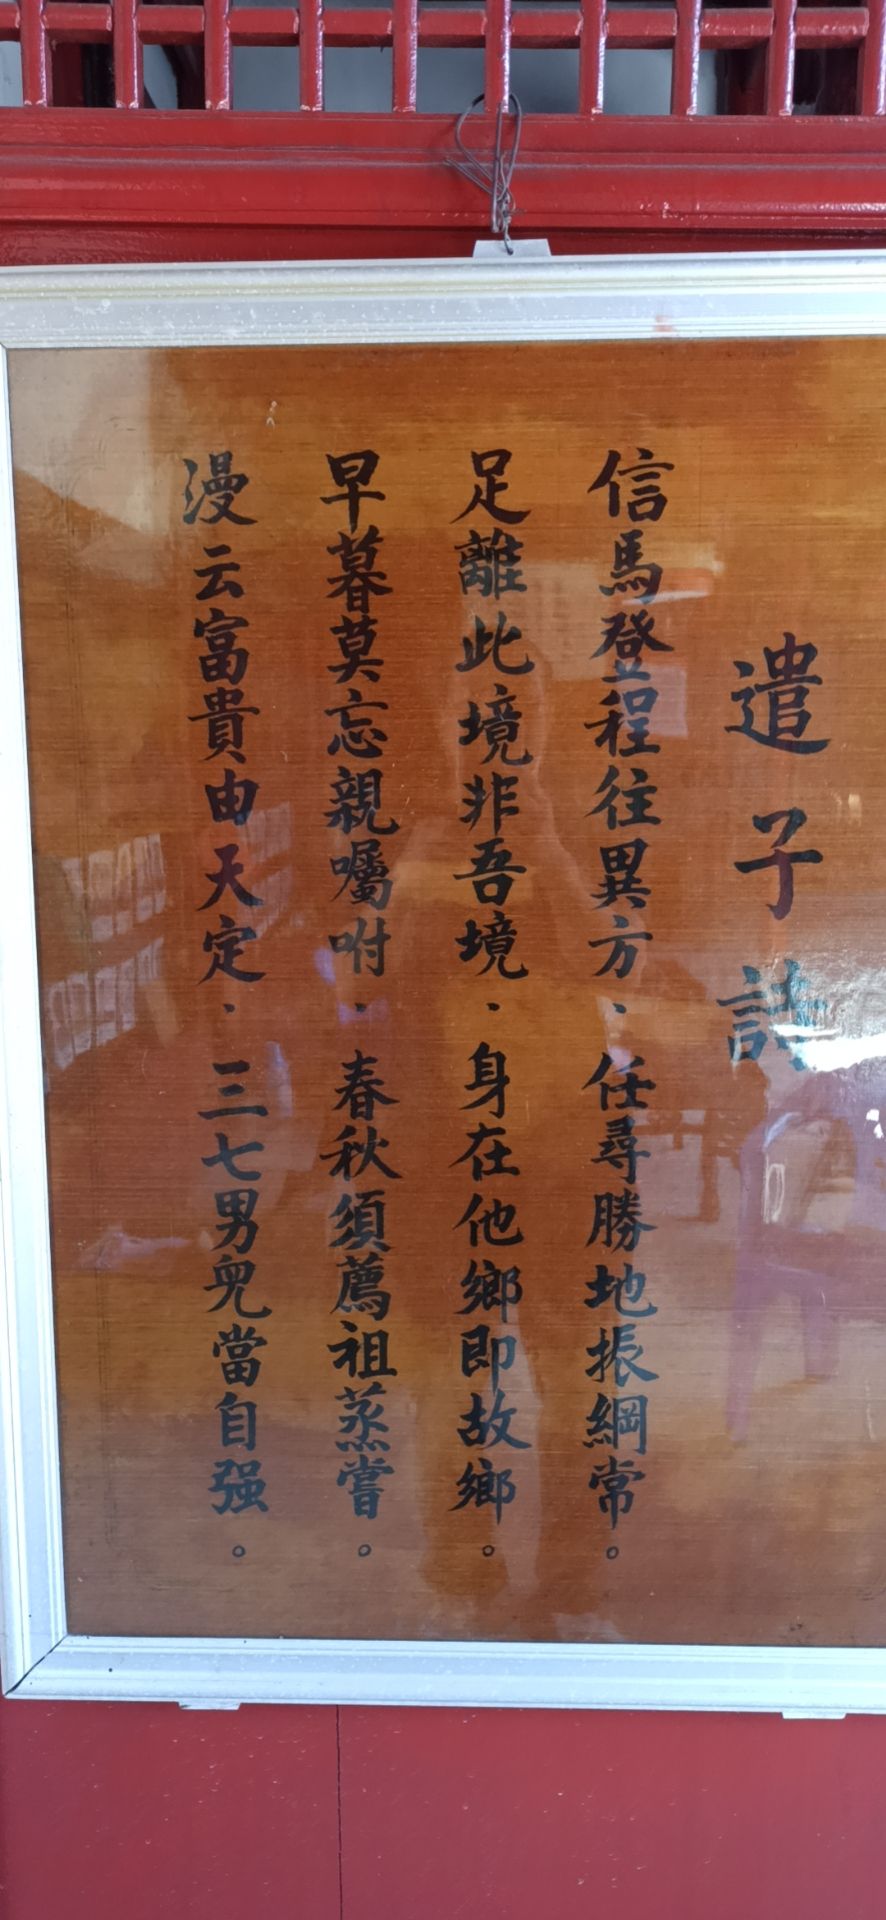 遣子詩
信馬登程往異方、任尋勝地振綱常。
足離此境非吾境、身在他鄉即故鄉。
早暮莫忘親囑咐、春秋須薦祖蒸嘗。
漫云富貴由天定、三七男兒當自强。